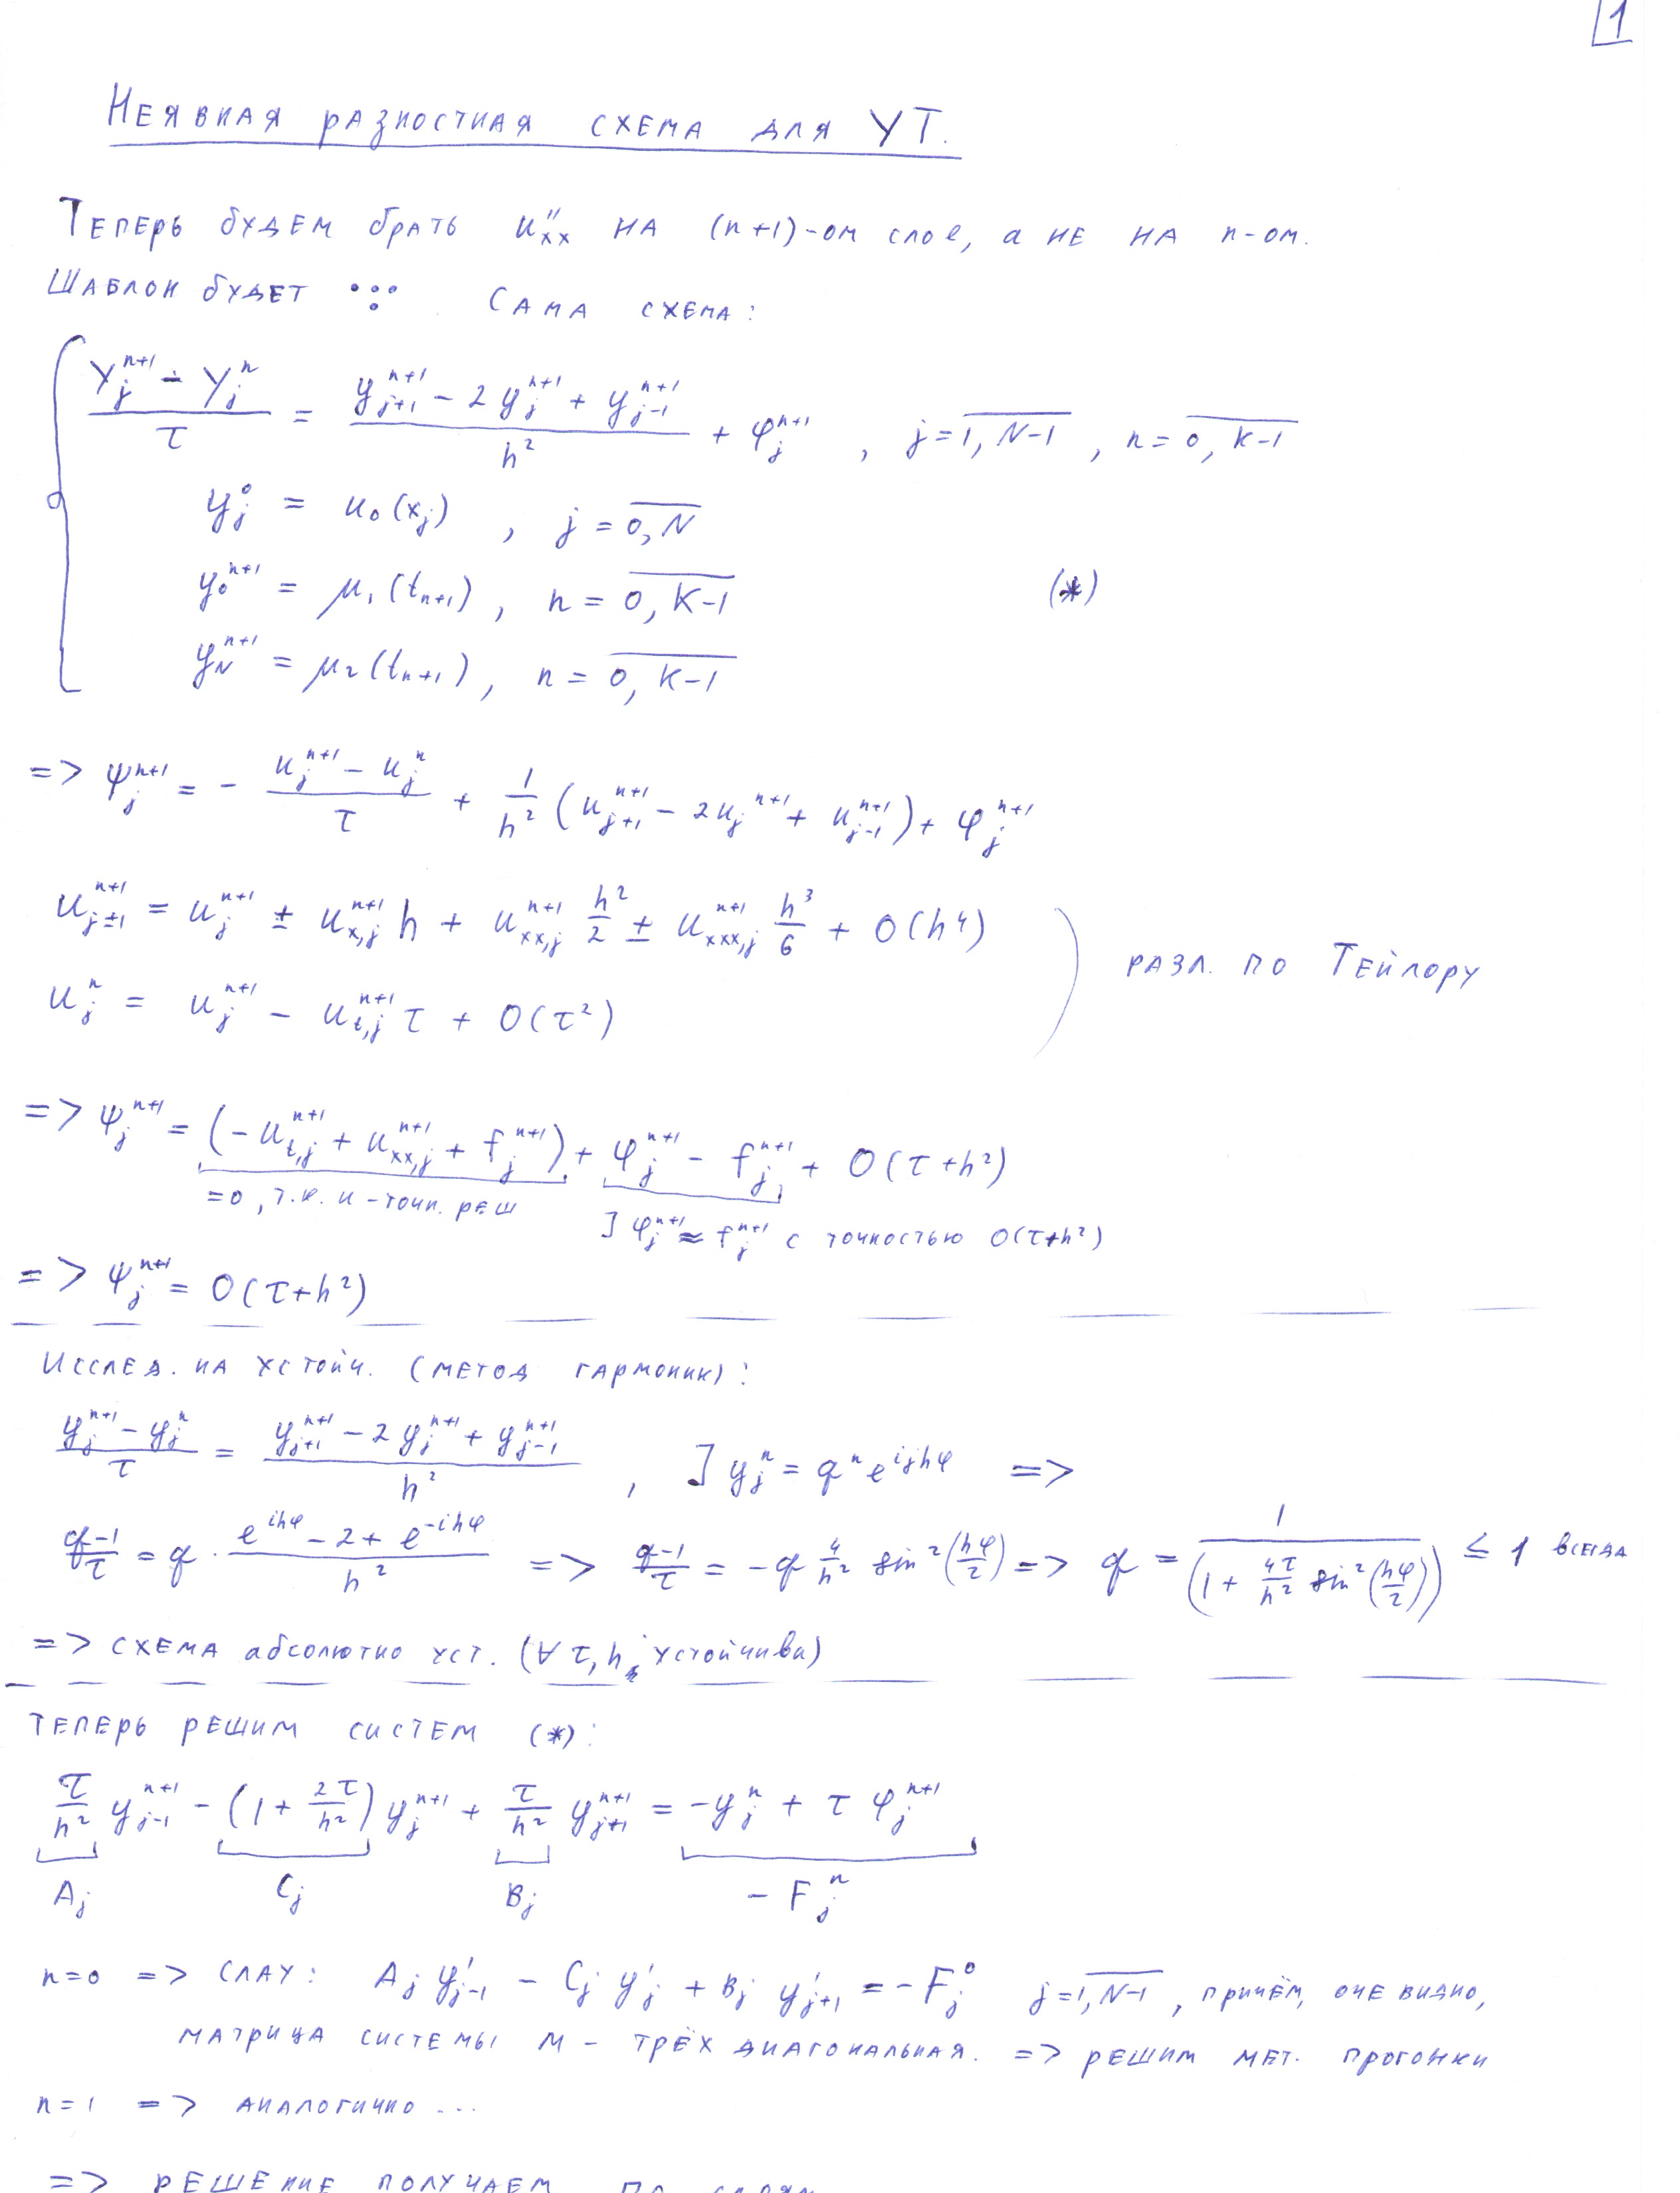 1
Неявная разностная схема для УТ.
Теперь будем брать u''_xx на (n+1)-ом слое, а не на n-ом.
Шаблон будет Сама схема:
(y_j^{n+1} - y_j^n)/τ = (y_{j+1}^{n+1} - 2y_j^{n+1} + y_{j-1}^{n+1})/h² + φ_j^{n+1}, j = \overline{1, N-1}, n = \overline{0, K-1}
y_j^0 = u_0(x_j), j = \overline{0, N}
y_0^{n+1} = μ_1(t_{n+1}), n = \overline{0, K-1} (*)
y_N^{n+1} = μ_2(t_{n+1}), n = \overline{0, K-1}
=> ψ_j^{n+1} = - (u_j^{n+1} - u_j^n)/τ + 1/h² (u_{j+1}^{n+1} - 2u_j^{n+1} + u_{j-1}^{n+1}) + φ_j^{n+1}
u_{j±1}^{n+1} = u_j^{n+1} ± u_{x,j}^{n+1} h + u_{xx,j}^{n+1} h²/2 ± u_{xxx,j}^{n+1} h³/6 + O(h⁴)
разл. по Тейлору
u_j^n = u_j^{n+1} - u_{t,j}^{n+1} τ + O(τ²)
=> ψ_j^{n+1} = (-u_{t,j}^{n+1} + u_{xx,j}^{n+1} + f_j^{n+1}) + φ_j^{n+1} - f_j^{n+1} + O(τ+h²)
=0, т.к. u - точн. реш
] φ_j^{n+1} ≈ f_j^{n+1} с точностью O(τ+h²)
=> ψ_j^{n+1} = O(τ+h²)
Исслед. на устойч. (метод гармоник):
(y_j^{n+1} - y_j^n)/τ = (y_{j+1}^{n+1} - 2y_j^{n+1} + y_{j-1}^{n+1})/h², ] y_j^n = q^n e^{ijhφ} =>
(q-1)/τ = q · (e^{ihφ} - 2 + e^{-ihφ})/h² => (q-1)/τ = -q 4/h² sin²(hφ/2) => q = 1/(1 + 4τ/h² sin²(hφ/2)) ≤ 1 всегда
=> схема абсолютно уст. (∀ τ, h устойчива)
Теперь решим систем (*):
τ/h² y_{j-1}^{n+1} - (1 + 2τ/h²) y_j^{n+1} + τ/h² y_{j+1}^{n+1} = -y_j^n + τ φ_j^{n+1}
A_j C_j B_j - F_j^n
n=0 => СЛАУ: A_j y_{j-1}^1 - C_j y_j^1 + B_j y_{j+1}^1 = -F_j^0 j = \overline{1, N-1}, причём, очевидно,
матрица системы M - трёхдиагональная. => решим мет. прогонки
n=1 => аналогично ...
=> решение получаем по слоям